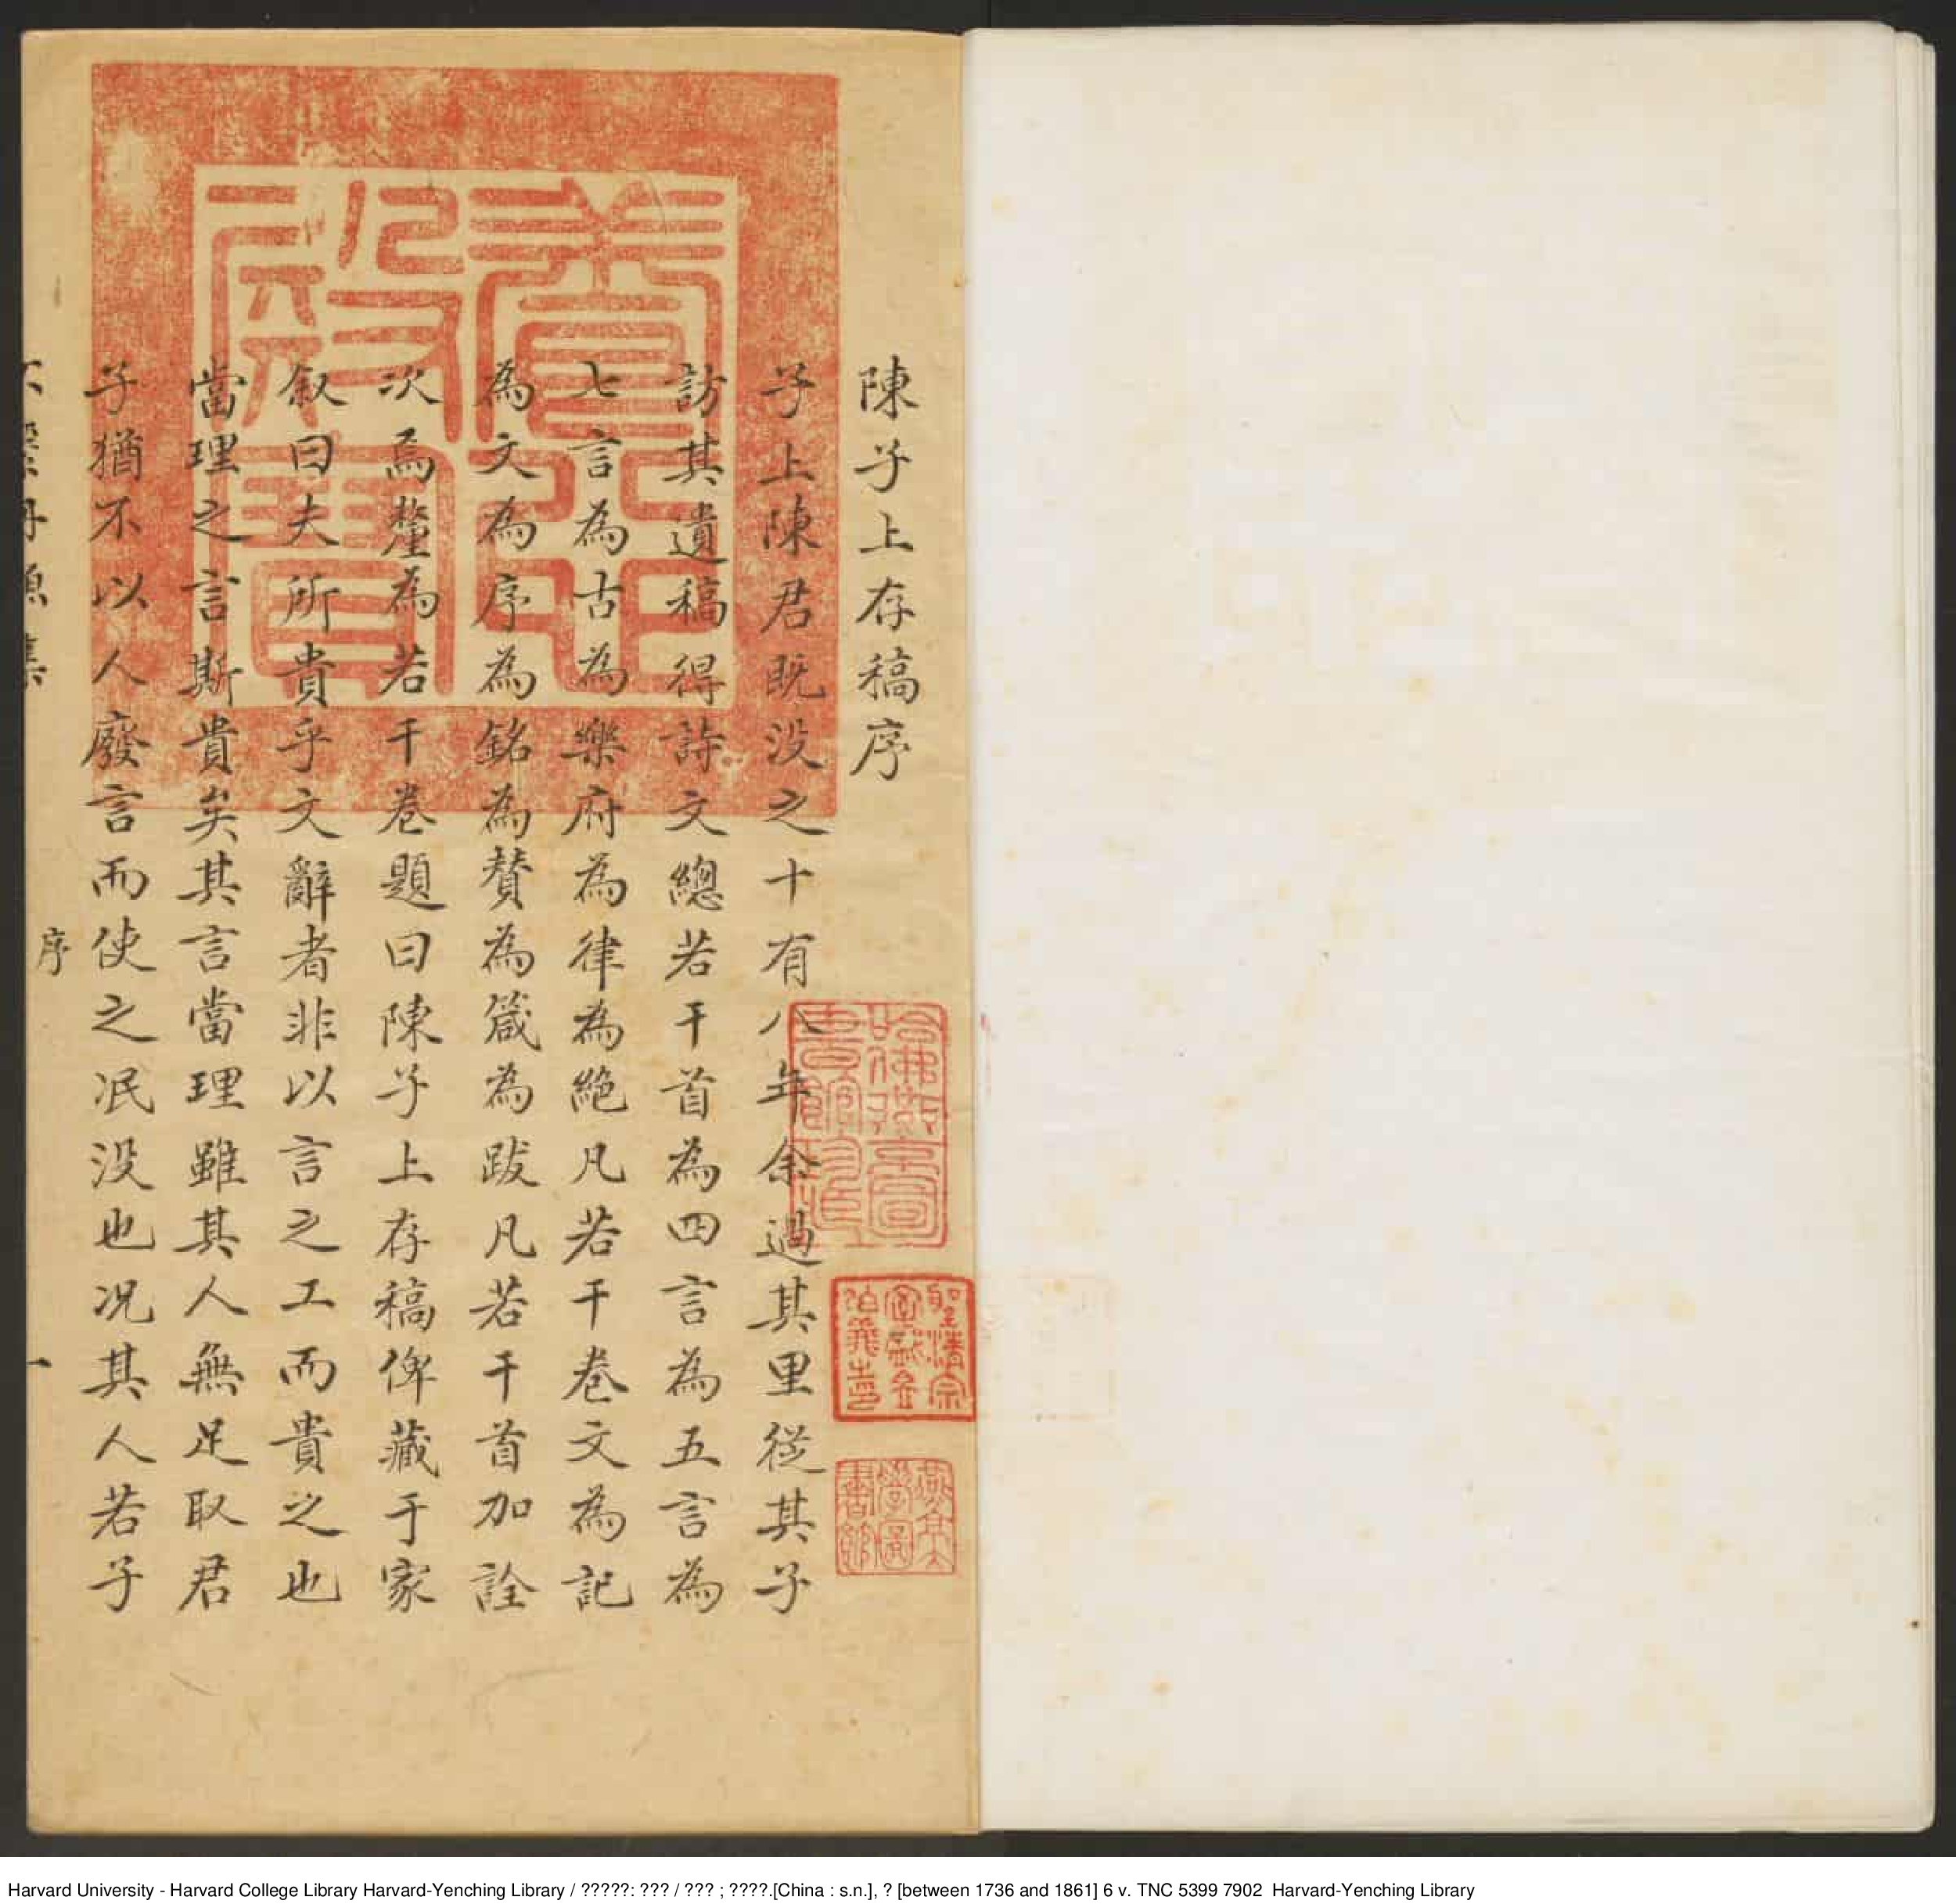 陳子上存稿序
子上陳君既没之十有八年余過其里從其子
訪其遺稿得詩文總若干首為四言為五言為
七言為古為樂府為律為絶凡若干卷文為記
為文為序為銘為賛為箴為跋凡若干首加詮
次焉釐為若干卷題曰陳子上存稿俾藏于家
叙曰夫所貴乎文辭者非以言之工而貴之也
當理之言斯貴矣其言當理雖其人無足取君
子猶不以人廢言而使之泯没也况其人若子
序
一
哈佛燕京圖書館珍藏
聖清宗室盛昱伯羲之印
燕京大學圖書館
Harvard University - Harvard College Library Harvard-Yenching Library / ?????: ??? / ??? ; ????.[China : s.n.], ? [between 1736 and 1861] 6 v. TNC 5399 7902 Harvard-Yenching Library